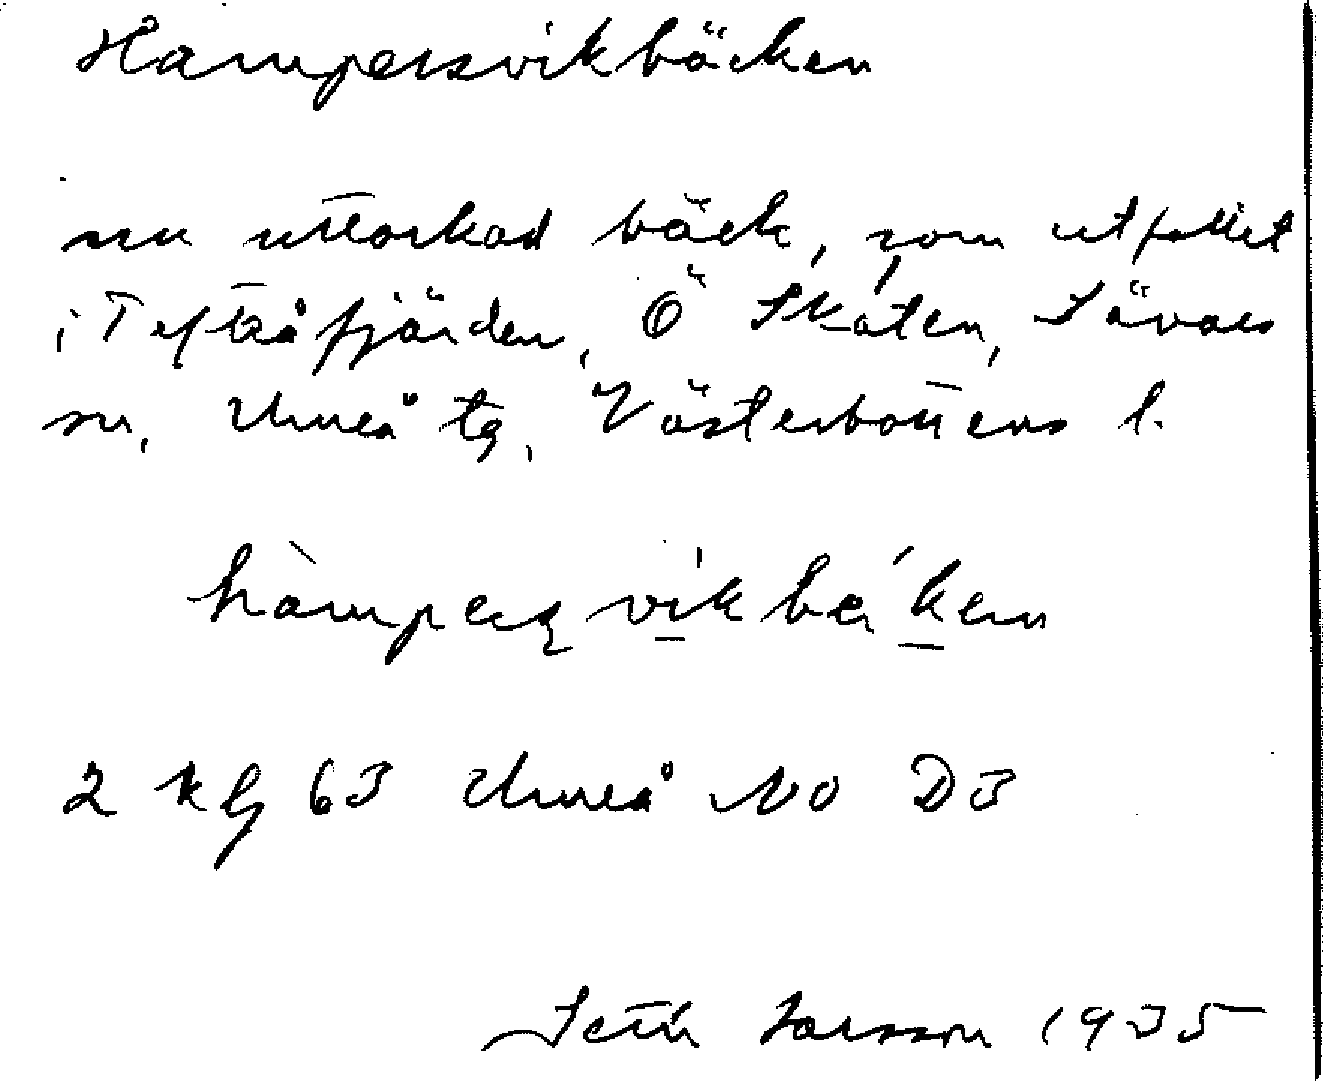 Hampersvikbäcken
nu uttorkad bäck, som utfallit
i Tefteåfjärden, Ö Skäten, Sävars
sn, Umeå tg, Västerbottens l.
hàmpeʂvikbǽken
2 kg 63 Umeå NO D3
Seth Larsson 1935